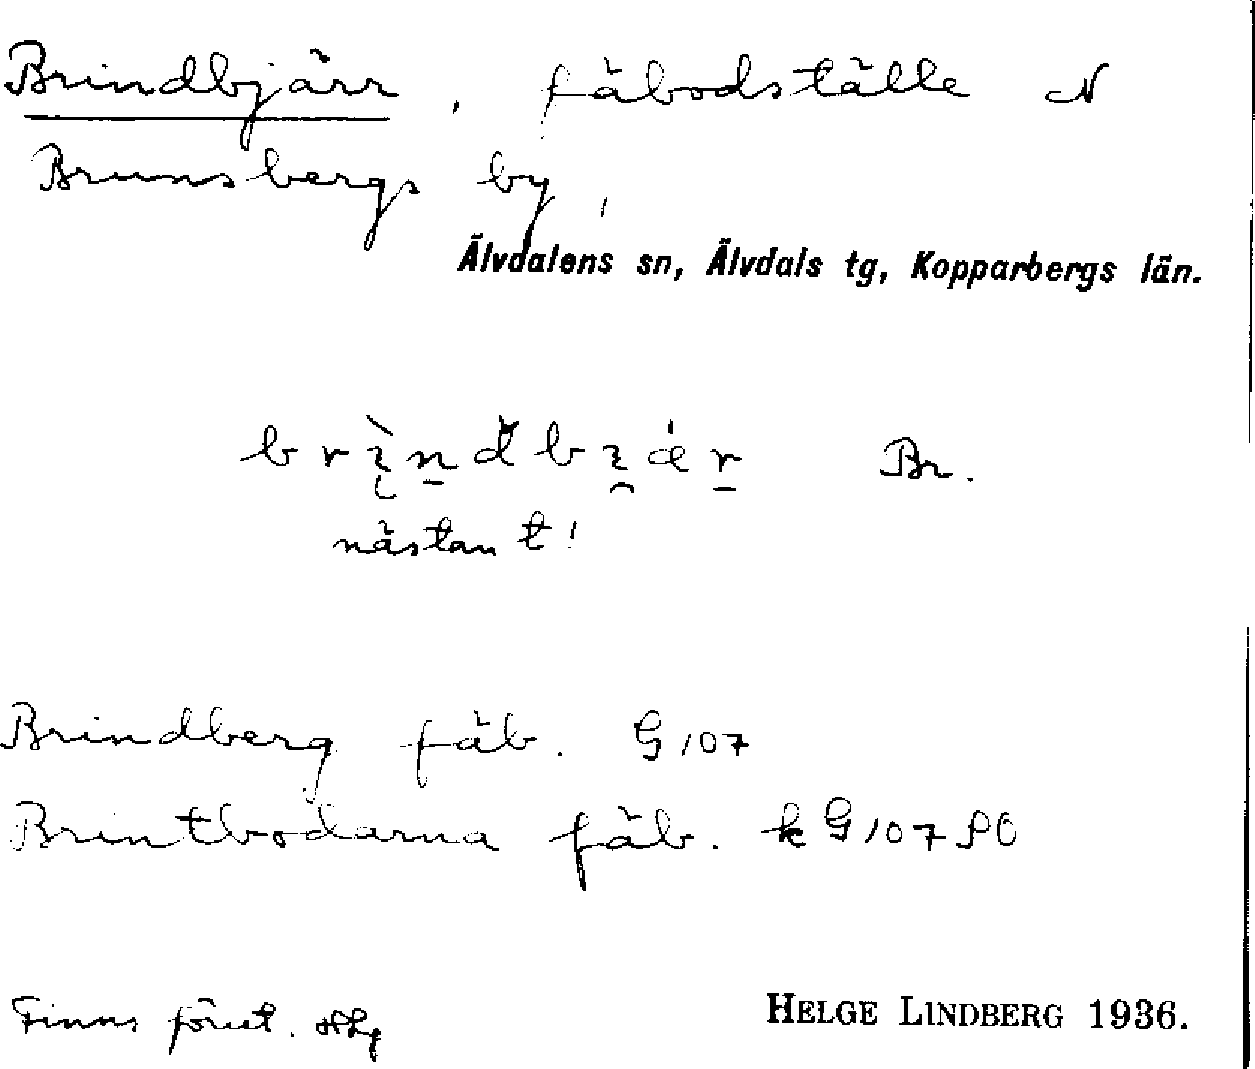 Brindbjärr, fäbodställe N
Brunsbergs by,
Älvdalens sn, Älvdals tg, Kopparbergs län.
brìndbiær Br.
nästan t!
Brindberg fäb. G 107
Brintbodarna fäb. k G 107 SO
Finns förut.
HELGE LINDBERG 1936.